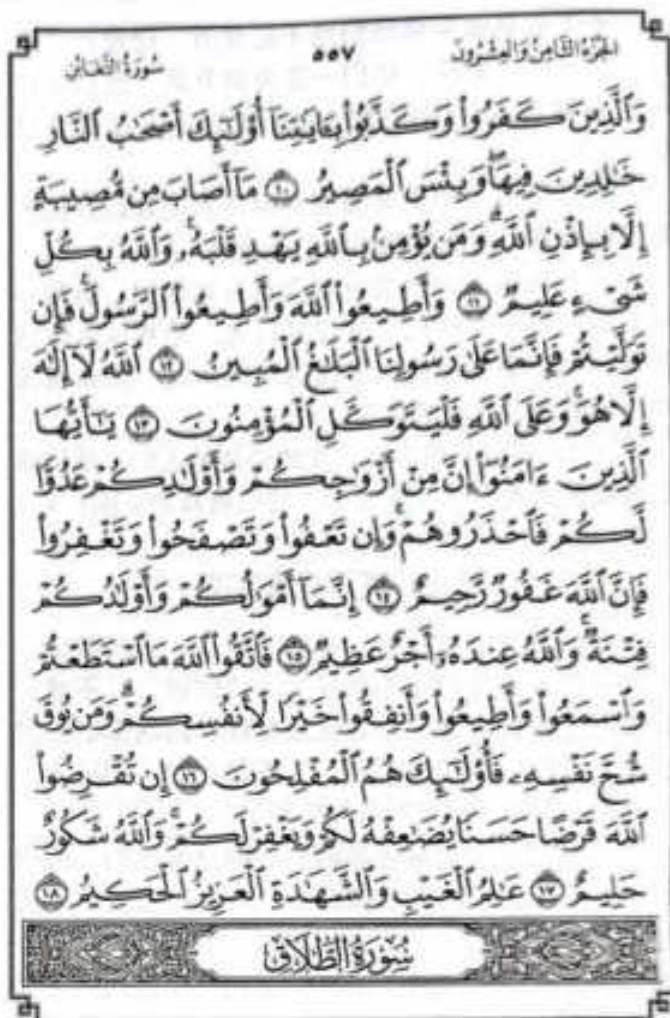 الجزء الثامن والعشرون ٥٥٧ سورة التغابن
وَٱلَّذِينَ كَفَرُوا۟ وَكَذَّبُوا۟ بِـَٔايَـٰتِنَآ أُو۟لَـٰٓئِكَ أَصْحَـٰبُ ٱلنَّارِ
خَـٰلِدِينَ فِيهَا ۖ وَبِئْسَ ٱلْمَصِيرُ ١٠ مَآ أَصَابَ مِن مُّصِيبَةٍ
إِلَّا بِإِذْنِ ٱللَّهِ ۗ وَمَن يُؤْمِنۢ بِٱللَّهِ يَهْدِ قَلْبَهُۥ ۚ وَٱللَّهُ بِكُلِّ
شَىْءٍ عَلِيمٌ ١١ وَأَطِيعُوا۟ ٱللَّهَ وَأَطِيعُوا۟ ٱلرَّسُولَ ۚ فَإِن
تَوَلَّيْتُمْ فَإِنَّمَا عَلَىٰ رَسُولِنَا ٱلْبَلَـٰغُ ٱلْمُبِينُ ١٢ ٱللَّهُ لَآ إِلَـٰهَ
إِلَّا هُوَ ۚ وَعَلَى ٱللَّهِ فَلْيَتَوَكَّلِ ٱلْمُؤْمِنُونَ ١٣ يَـٰٓأَيُّهَا
ٱلَّذِينَ ءَامَنُوٓا۟ إِنَّ مِنْ أَزْوَٰجِكُمْ وَأَوْلَـٰدِكُمْ عَدُوًّا
لَّكُمْ فَٱحْذَرُوهُمْ ۚ وَإِن تَعْفُوا۟ وَتَصْفَحُوا۟ وَتَغْفِرُوا۟
فَإِنَّ ٱللَّهَ غَفُورٌ رَّحِيمٌ ١٤ إِنَّمَآ أَمْوَٰلُكُمْ وَأَوْلَـٰدُكُمْ
فِتْنَةٌ ۚ وَٱللَّهُ عِندَهُۥٓ أَجْرٌ عَظِيمٌ ١٥ فَٱتَّقُوا۟ ٱللَّهَ مَا ٱسْتَطَعْتُمْ
وَٱسْمَعُوا۟ وَأَطِيعُوا۟ وَأَنفِقُوا۟ خَيْرًا لِّأَنفُسِكُمْ ۗ وَمَن يُوقَ
شُحَّ نَفْسِهِۦ فَأُو۟لَـٰٓئِكَ هُمُ ٱلْمُفْلِحُونَ ١٦ إِن تُقْرِضُوا۟
ٱللَّهَ قَرْضًا حَسَنًا يُضَـٰعِفْهُ لَكُمْ وَيَغْفِرْ لَكُمْ ۚ وَٱللَّهُ شَكُورٌ
حَلِيمٌ ١٧ عَـٰلِمُ ٱلْغَيْبِ وَٱلشَّهَـٰدَةِ ٱلْعَزِيزُ ٱلْحَكِيمُ ١٨
سُورَةُ الطَّلَاقِ